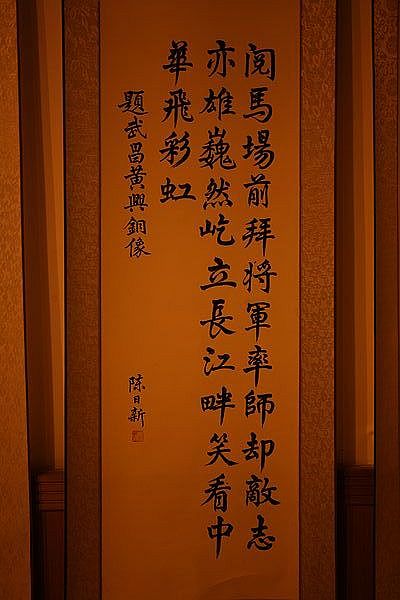 閱馬場前拜将軍率師却敵志
亦雄巍然屹立長江畔笑看中
華飛彩虹
題武昌黃興銅像
陈日新